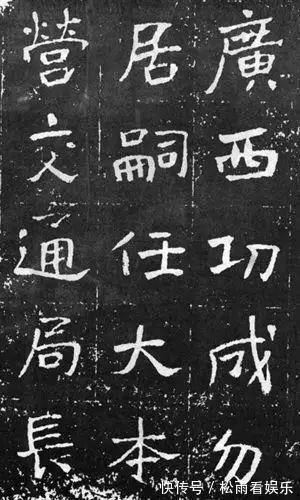 廣西功成勿
居嗣任大本
營交通局長
快传号/松雨看娱乐